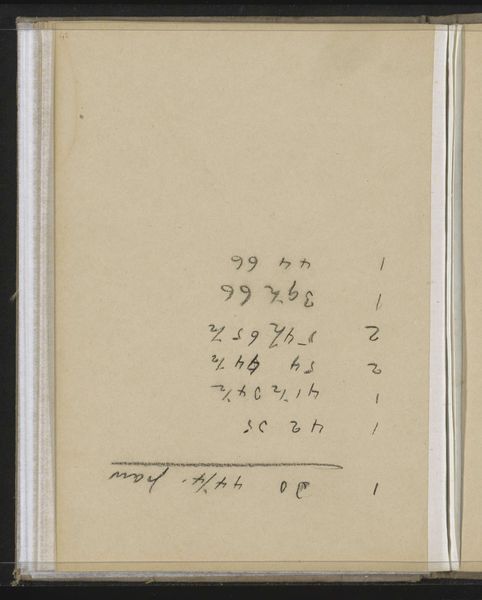 1 30 44 1/4
1 42 35
1 41 1/2 34 1/2
2 54 44 1/2
2 54 1/2 65 1/2
1 39 1/2 66
1 44 66